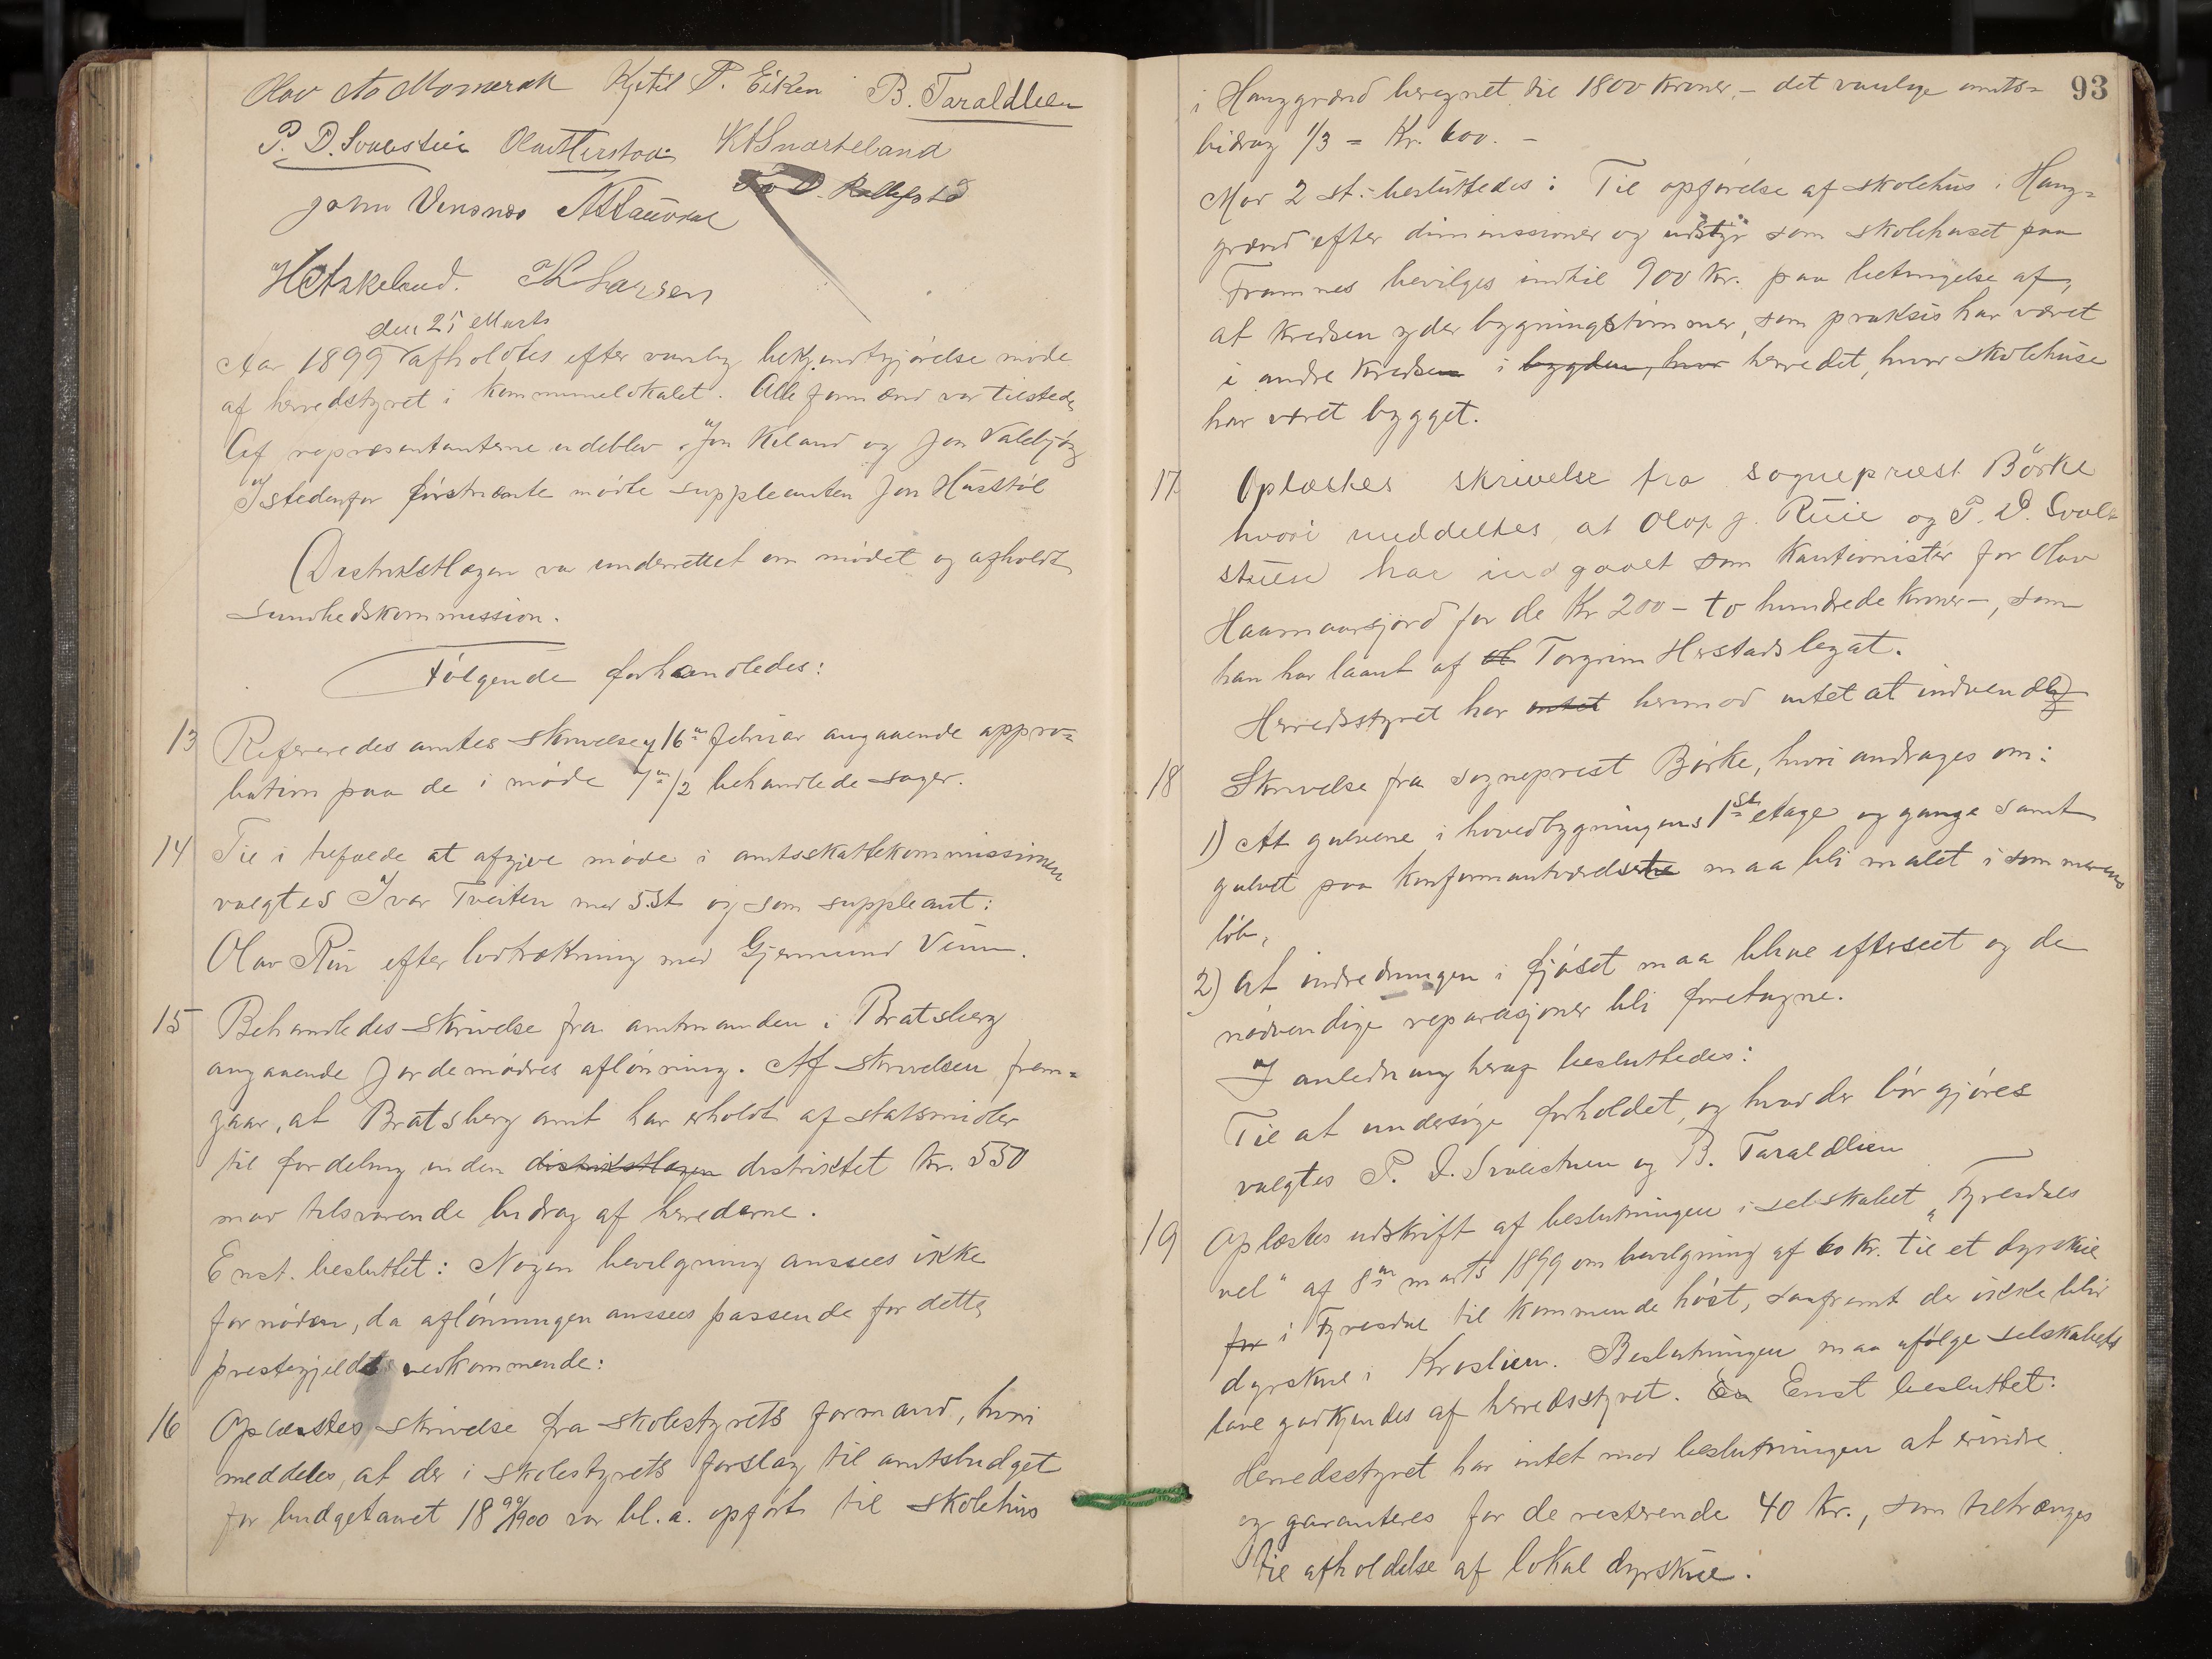 Olav As Momrak Kjetil P. Eiken B. Taraldlien
P. D. Svalestuen Olav Herstad KASnarteland
John Vensnes
HAskeland. K Larsen
den 25 Marts
Aar 1899 afholdtes efter vanlig bekjendtgjørelse møde
af herredstyret i kommunelokalet. Alle formænd var tilstede,
Af repræsentanterne udeblev Jon Kiland og Jon Valebjørg
Istedenfor førstnævnte mødte suppleanten Jon Husstøl
Distriktslægen var underrettet om mødet og afholdt
sundhedskommission.
Følgende forhandledes:
13 Refereredes amtets skrivelse af 16de februar angaaende appro=
bation paa de i møde 7de/2 behandlede sager.
14 Til i tilfælde at afgive møde i amtsskattekommissionen
valgtes Ivar Tveiten med 5.st og som suppleant:
Olav Rui efter lodtrækning med Gjermund Veum.
15 Behandledes skrivelse fra amtmanden i Bratsberg
angaaende Jordemødres aflønning. Af skrivelsen frem=
gaar, at Bratsberg amt har erholdt af statsmidler
til fordeling inden distriktslægen distriktet kr. 550
mod tilsvarende bidrag af herrederne.
Enst. besluttet: Nogen bevilgning ansees ikke
fornøden, da aflønningen ansees passende for dette
prestegjelds vedkommende:
16 Oplæstes skrivelse fra skolestyrets formand, hvori
meddeles, at der i skolestyrets forslag til amtsbudget
for budgetaaret 1899/1900 var bl. a. opført til skolehus
93
i Hauggrænd beregnet til 1800 kroner, – det vanlige amts=
bidrag 1/3 = Kr. 600. –
Mod 2 st. besluttedes: Til opførelse af skolehus i Haug=
grænd efter dimenssioner og udstyr som skolehuset paa
Framnes bevilges indtil 900 Kr. paa betingelse af,
at kredsen yder bygningstømmer, som praksis har været
i andre kredse i bygden, hvor herredet, hvor skolehuse
har været bygget.
17 Oplæstes skrivelse fra sogneprest Børke
hvori meddeltes, at Olav J. Ruie og P. D. Svale
stuen har indgaaet som kautionister for Olav
Haamaarsjord for de Kr 200 – to hundrede kroner –, som
han har laant af Torgrim Herstads legat.
Herredsstyret har intet hermod intet at indvende
18 Skrivelse fra sogneprest Børke, hvori andrages om:
1) At gulvene i hovedbygningens 1ste etage og gange samt
gulvet paa konfirmantværelset maa bli malet i sommerens
løb,
2) at indredningen i fjøset maa blive efterseet og de
nødvendige reparasjoner bli foretagne.
I anledning heraf besluttedes:
Til at undersøge forholdet, og hvad der bør gjøres
valgtes P. D. Svalestuen og B. Taraldlien
19 Oplæstes udskrift af beslutningen i selskabet „Tyresdals
vel" af 8de marts 1899 om bevilgning af 60 kr. til et dyrskue
for i Tyresdal til kommende høst, saafremt der ikke blir
dyrskue i Kroslien. Beslutningen maa ifølge selskabets
love godkjendes af herredsstyret. En Enst besluttet:
Herredsstyret har intet mod beslutningen at erindre.
og garanteres for de resterende 40 kr., som tiltrænges
til afholdelse af lokal dyrskue.